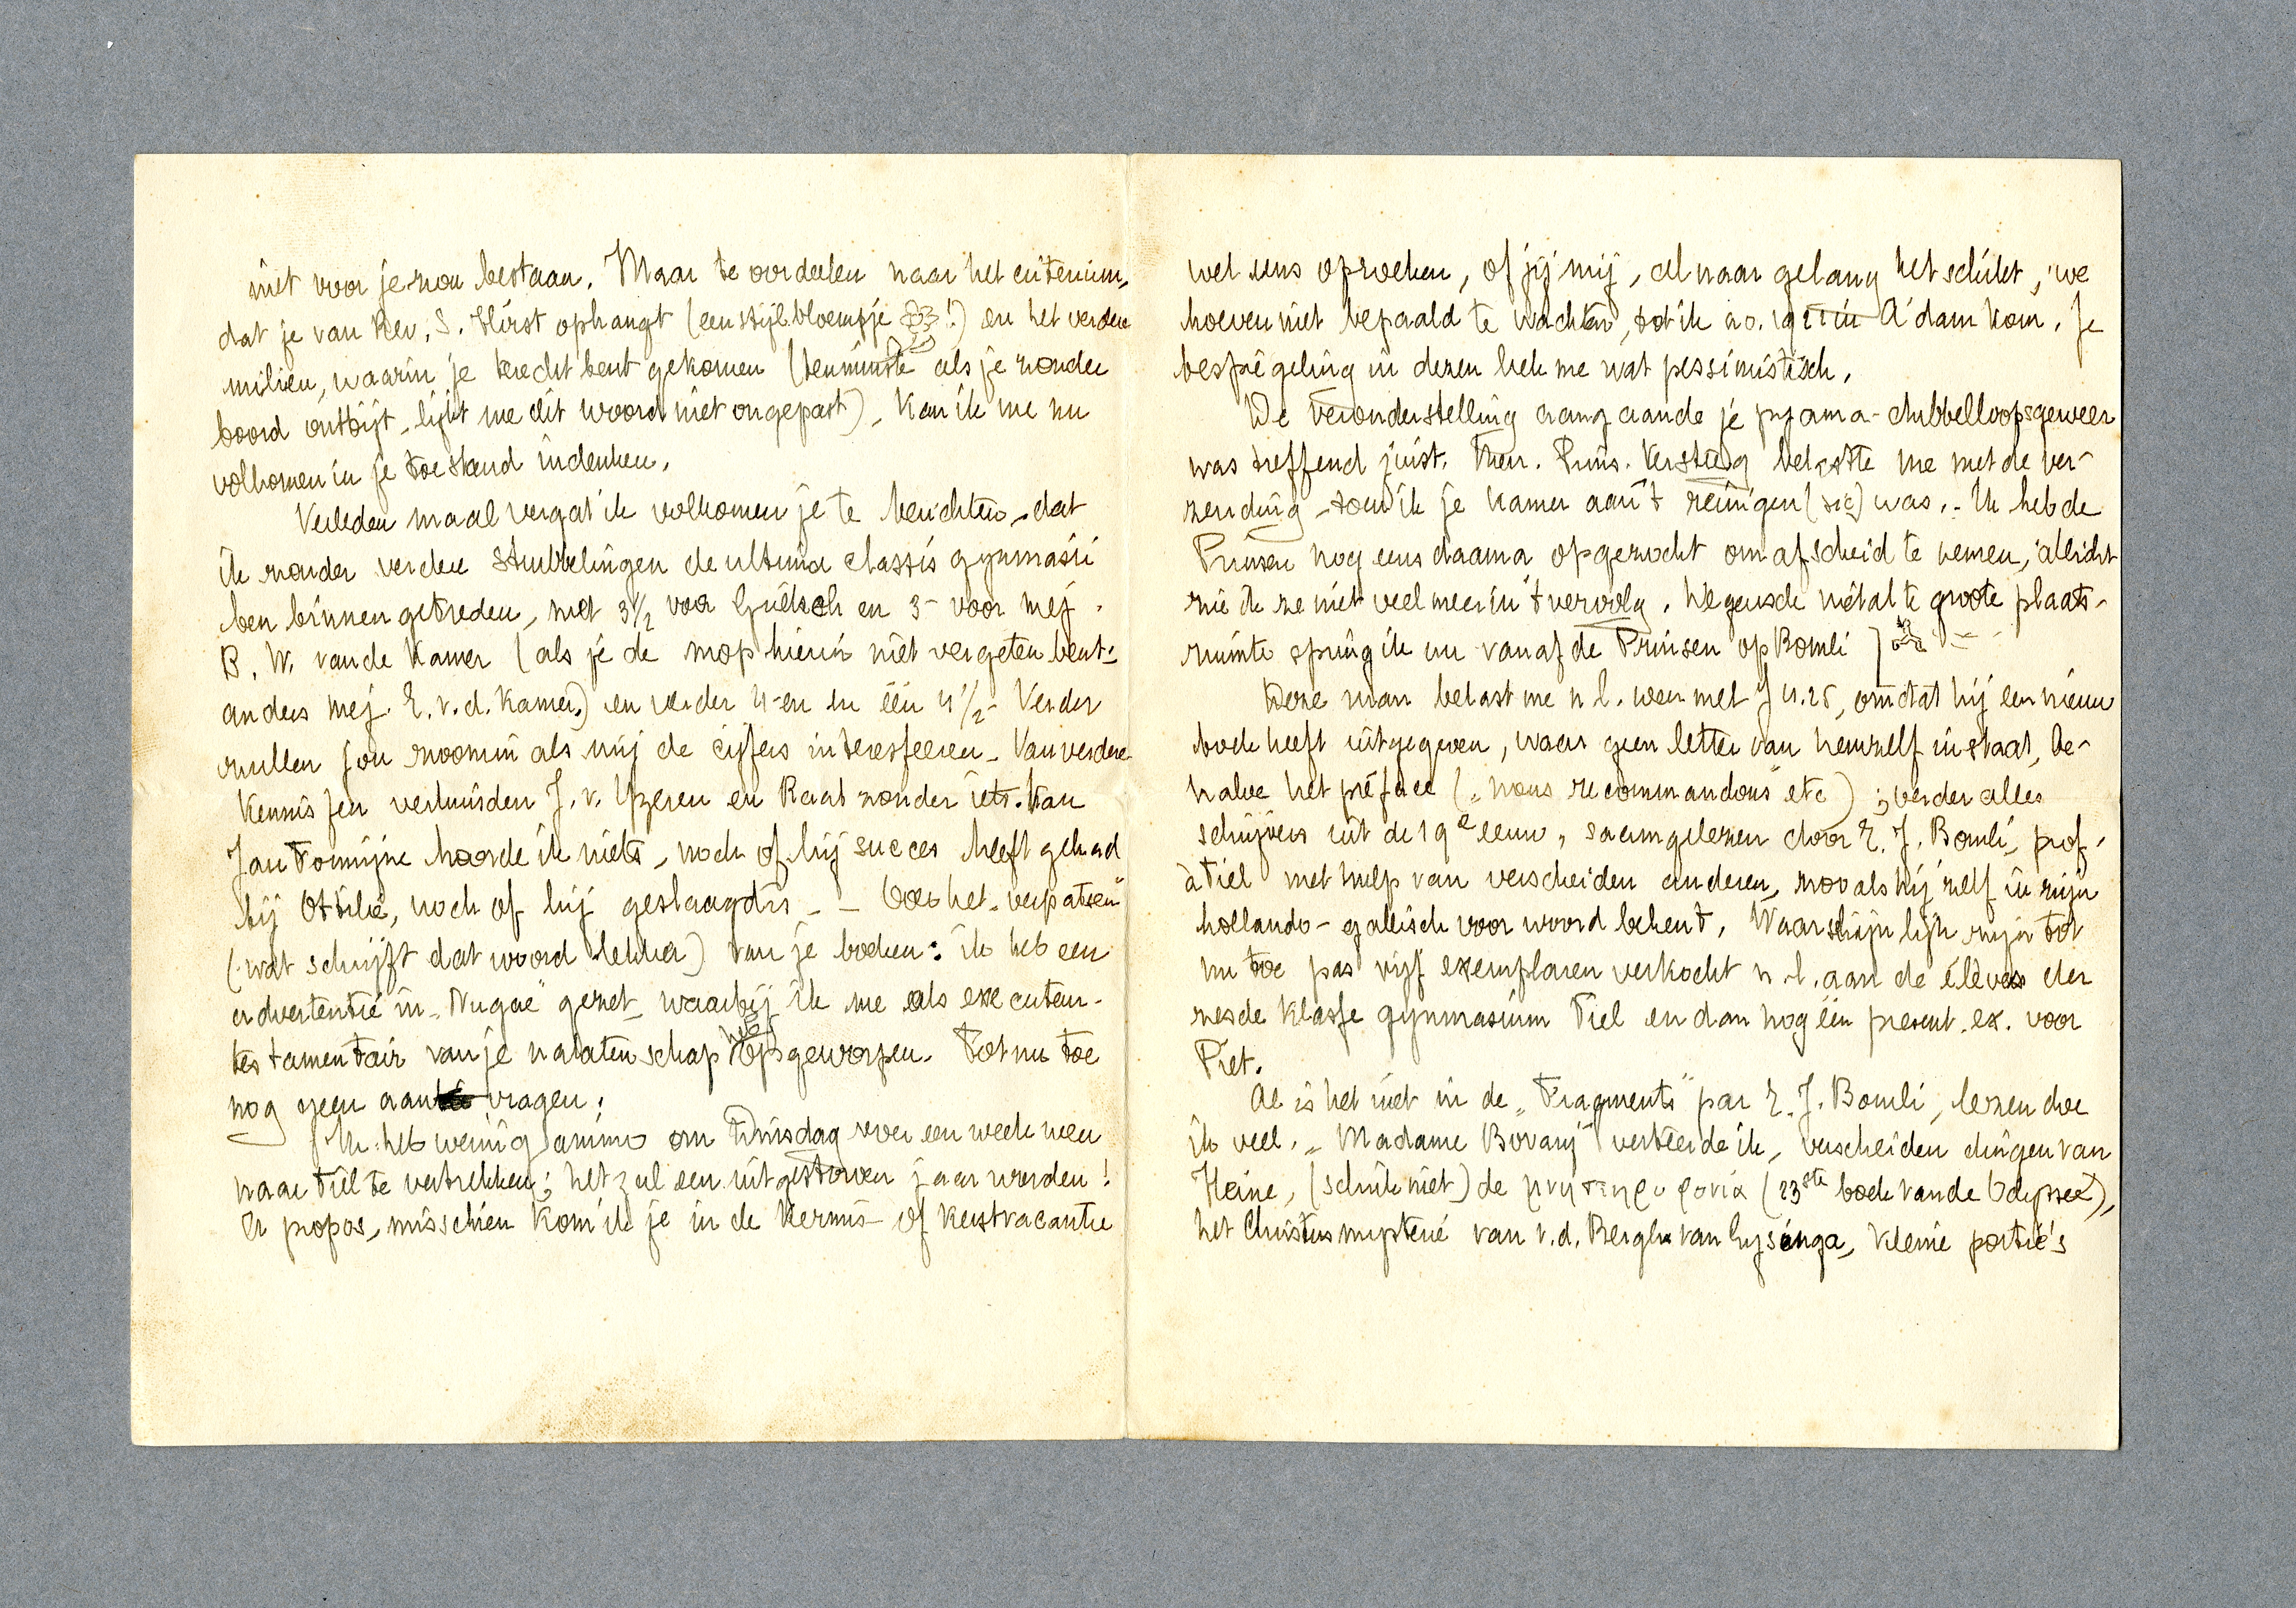 niet voor je zou bestaan. Maar te oordeelen naar het criterium,
dat je van Rev. S. Hirst ophangt (een stijlbloempje !) en het verdere
milieu, waarin je terecht bent gekomen (tenminste als je zonder
boord ontbijt, lijkt me dit woord niet ongepast), kan ik me nu
volkomen in je toestand indenken.
Verleden maal vergat ik volkomen je te berichten, dat
ik zonder verdere strubbelingen de ultima classis gymnasii
ben binnengetreden, met 3½ voor Grieksch en 3- voor mej.
B. W. van de Kamer (als je de mop hierin niet vergeten bent:
anders mej. E. v. d. Kamer.) en verder 4-en en één 4½- Verder
zullen jou zoomin als mij de cijfers interesseeren. Van verdere
kennissen verhuisden J. v. Yzeren en Raat zonder iets. Van
Jan Tomijne hoorde ik niets, noch of hij succes heeft gehad
bij Ottilie, noch of hij geslaagd is. — Over het „verpatsen"
(wat schrijft dat woord lekker) van je boeken: ik heb een
advertentie in „Nugae" gezet, waarbij ik me als executeur-
testamentair van je nalatenschap heb opgeworpen. Tot nu toe
nog geen aanvragen.
Ik heb weinig animo om Dinsdag over een week weer
naar Tiel te vertrekken; het zal een uitgestorven jaar worden!
A propos, misschien kom ik je in de Kermis- of Kerstvacantie
wel eens opzoeken, of jij mij, al naar gelang het schikt, we
hoeven niet bepaald te wachten, tot ik a.o. 19 in A'dam kom. Je
bespiegeling in dezen leek me wat pessimistisch.
De veronderstelling aangaande je pyama-dubbelloopsgeweer
was treffend juist. Mevr. Prins. Versteeg belastte me met de ver-
zending, toen ik je kamer aan 't reinigen (sic) was. - Ik heb de
Prinsen nog eens daarna opgezocht om afscheid te nemen, allicht
zie ik ze niet veel meer in 't vervolg. Wegens de niet al te groote plaats-
ruimte spring ik nu vanaf de Prinsen op Bomli
Deze man belast me n.l. weer met ƒ 4.25, omdat hij een nieuw
boek heeft uitgegeven, waar geen letter van hemzelf in staat, be-
halve het préface („nous recommandons" etc); verder alles
schrijvers uit de 19e eeuw, saamgelezen door E. J. Bomli, prof.
à Tiel met hulp van verscheiden anderen, zooals hij zelf in zijn
hollando-gallisch voorwoord bekent. Waarschijnlijk zijn tot
nu toe pas vijf exemplaren verkocht n.l. aan de élèves der
zesde klasse gymnasium Tiel en dan nog één present. ex. voor
Piet.
Al is het niet in de „Fragments" par E. J. Bomli, lezen doe
ik veel. „Madame Bovary" verteerde ik, verscheiden dingen van
Heine, (schrik niet) de μνηστηροφονια (23ste boek van de Odyssee),
het Christusmysterie van v. d. Bergh van Eysinga, kleine portie's